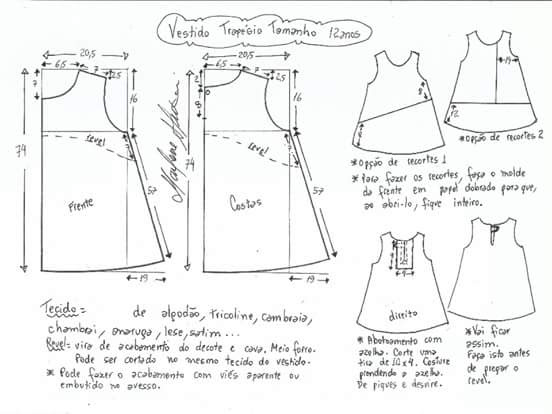 Vestido Trapézio Tamanho 12 anos
20,5
6,5
7
2,5
7
16
74
revel
5
57
Frente
19
20,5
6,5
7
2,5
2
8
16
74
revel
5
57
Costas
19
Marlene Mukai
8
8
*Opção de recortes 1
19
12
*Opção de recortes 2
*Para fazer os recortes, faça o molde
da frente em papel dobrado para que,
ao abri-lo, fique inteiro.
4
direito
*Abotoamento com
azelha. Corte uma
tira de 10 x 4. Costure
prendendo a azelha.
De piques e desvire.
*Vai ficar
assim.
Faça isto antes
de pregar o
revel.
Tecido = de algodão, tricoline, cambraia,
chambrai, anarruga, lese, satim...
Revel = vira de acabamento do decote e cava. Meio forro.
Pode ser cortado no mesmo tecido do vestido.
* Pode fazer o acabamento com viés aparente ou
embutido no avesso.